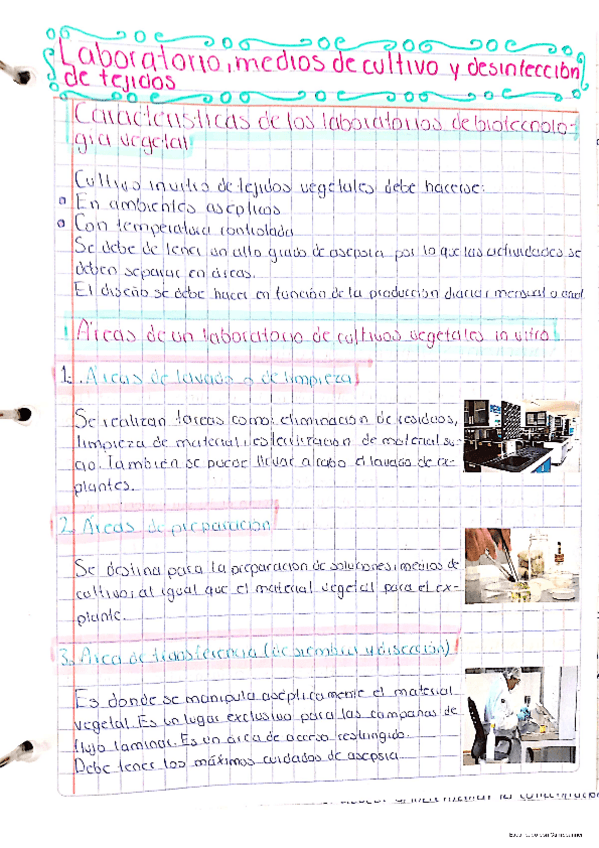 Laboratorio, medios de cultivo y desinfección
de tejidos
Características de los laboratorios de biotecnolo-
gía vegetal
Cultivo invitro de tejidos vegetales debe hacerse:
En ambientes asépticos
Con temperatura controlada
Se debe de tener un alto grado de asepsia por lo que las actividades se
deben separar en áreas.
El diseño se debe hacer en función de la producción diaria, mensual o anual
Áreas de un laboratorio de cultivos vegetales in vitro
1. Áreas de lavado o de limpieza
Se realizan tareas como: eliminación de residuos,
limpieza de material, esterilización de material su-
cio. También se puede llevar a cabo el lavado de ex-
plantes.
2. Áreas de preparación
Se destina para la preparación de soluciones, medios de
cultivo, al igual que el material vegetal para el ex-
plante.
3. Área de transferencia (de siembra y disección)
Es donde se manipula asépticamente el material
vegetal. Es un lugar exclusivo para las campanas de
flujo laminar. Es un área de acceso restringido.
Debe tener los máximos cuidados de asepsia